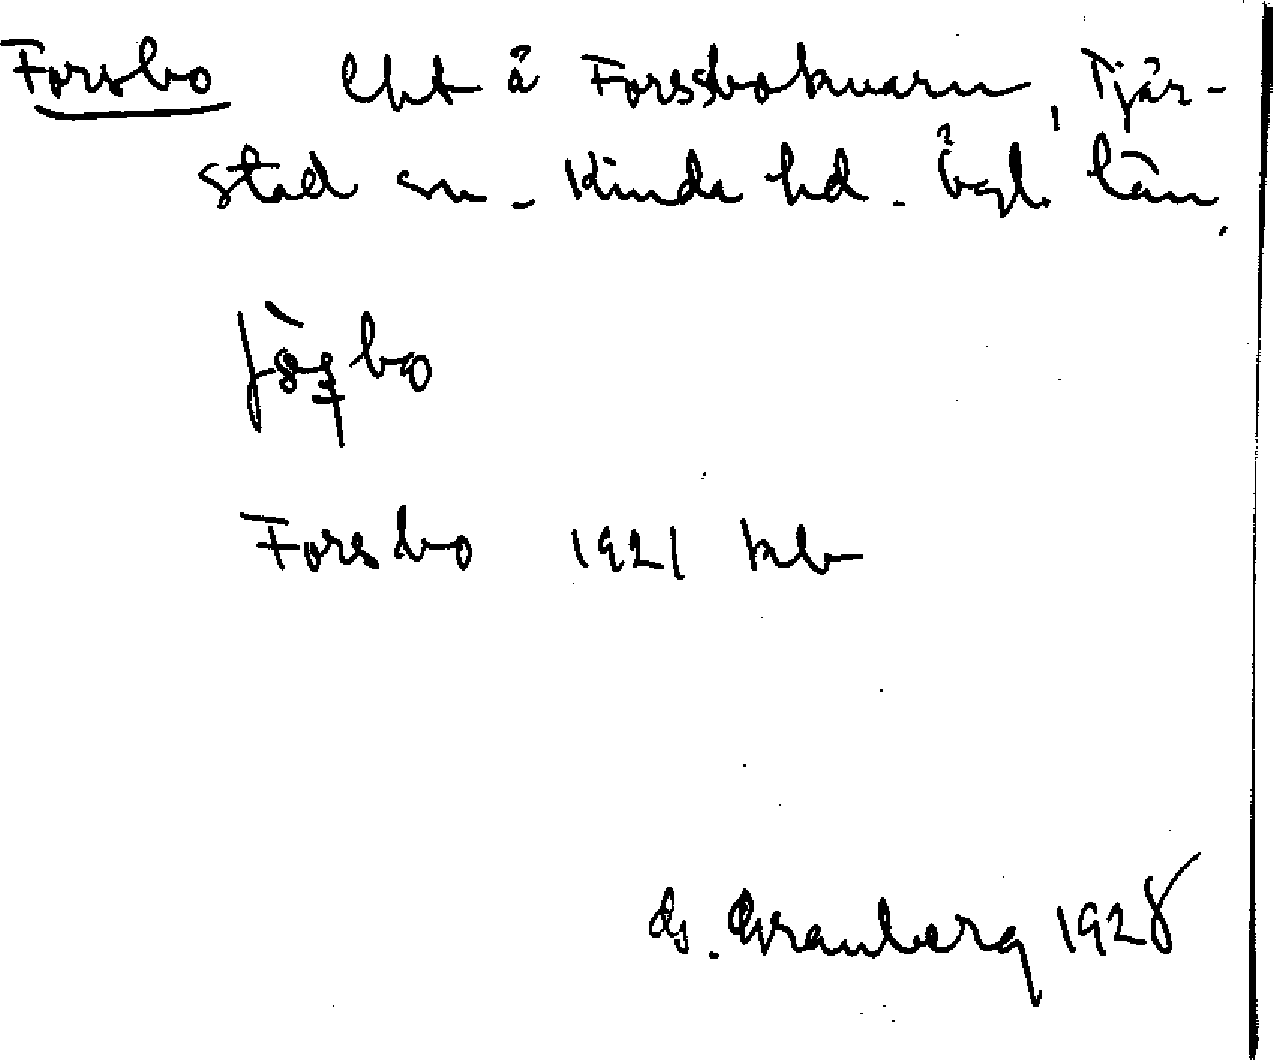 Forsbo lht å Forssbokvarn, Tjär-
stad sn. Kinda hd. Ögl. län.
Forsbo 1921 kb
G. Granberg 1928